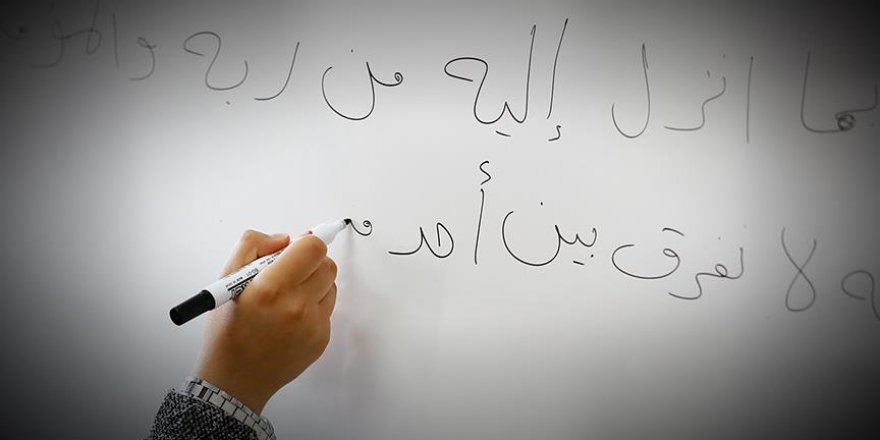 بما انزل إليه من ربه والمؤمـ
ـه لا نفرق بين أحد مـ